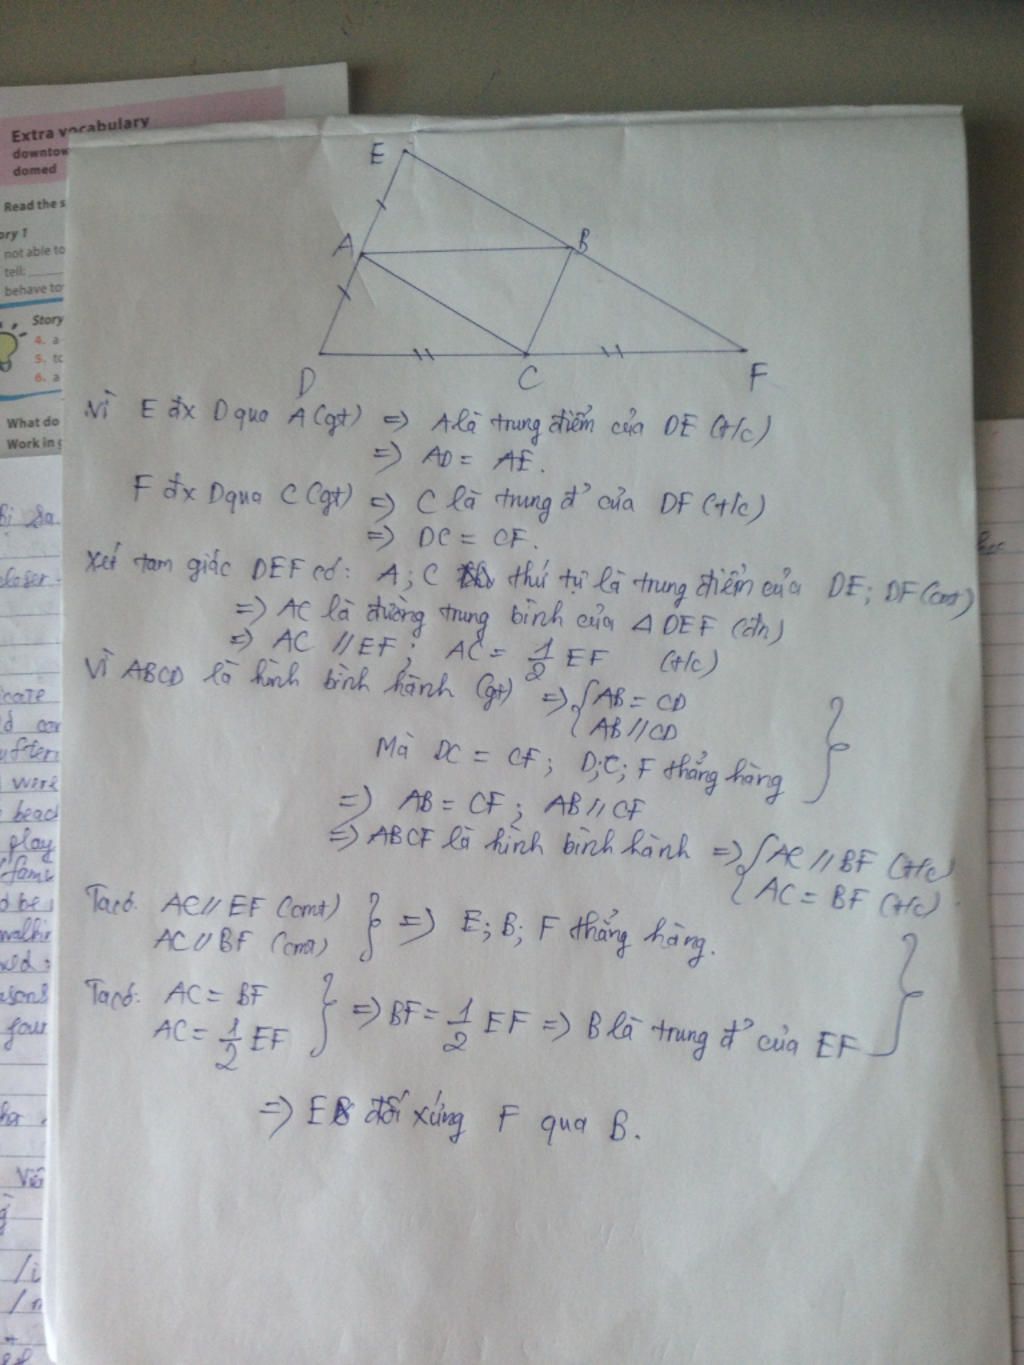 Extra vocabulary
downtow
domed
Read the s
ory 1
not able to
tell:
behave to
Story
4. a
5. to
6. a
What do
Work in g
E
A
B
D
C
F
Vì E đx D qua A (gt) => A là trung điểm của DE (t/c)
=> AD = AE.
F đx D qua C (gt) => C là trung đ' của DF (t/c)
=> DC = CF.
Xét tam giác DEF có: A; C thứ tự là trung điểm của DE; DF (cmt)
=> AC là đường trung bình của Δ DEF (đn)
=> AC // EF; AC = 1/2 EF (t/c)
Vì ABCD là hình bình hành (gt) => { AB = CD
AB // CD
Mà DC = CF; D; C; F thẳng hàng }
=> AB = CF; AB // CF
=> ABCF là hình bình hành => { AC // BF (t/c)
AC = BF (t/c).
Ta có: AC // EF (cmt)
AC // BF (cmt) } => E; B; F thẳng hàng.
Ta có: AC = BF
AC = 1/2 EF } => BF = 1/2 EF => B là trung đ' của EF }
=> E đối xứng F qua B.